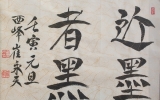 近墨
者黑
壬寅元旦
西峰崔永文